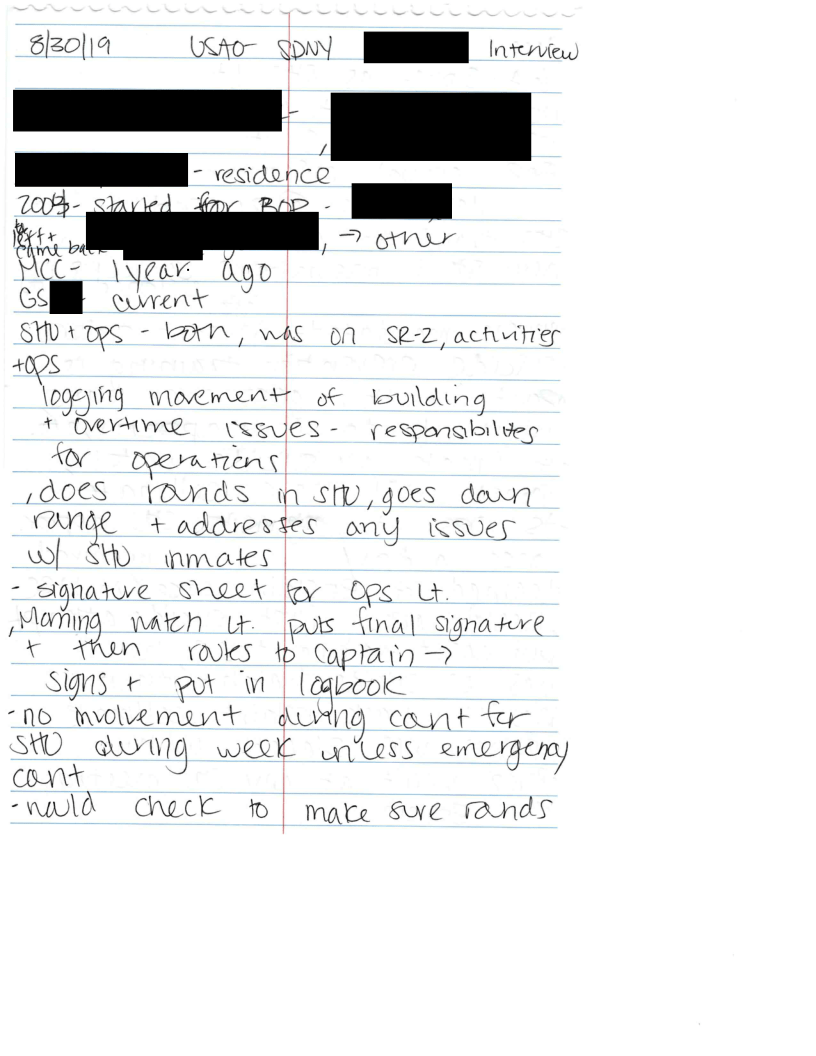 8/30/19 USAO- SDNY Interview
-
,
- residence
- started for BOP -
left + , → other
came back
MCC- 1 year ago
GS - current
SHU + OPS - both, was on SR-2, activities
+OPS
logging movement of building
+ overtime issues - responsibilites
for operations
, does rounds in SHU, goes down
range + addresses any issues
w/ SHU inmates
- signature sheet for OPS Lt.
, Morning watch Lt. puts final signature
+ then routes to Captain →
signs + put in logbook
- no involvement during count for
SHU during week unless emergency
count
- would check to make sure rounds